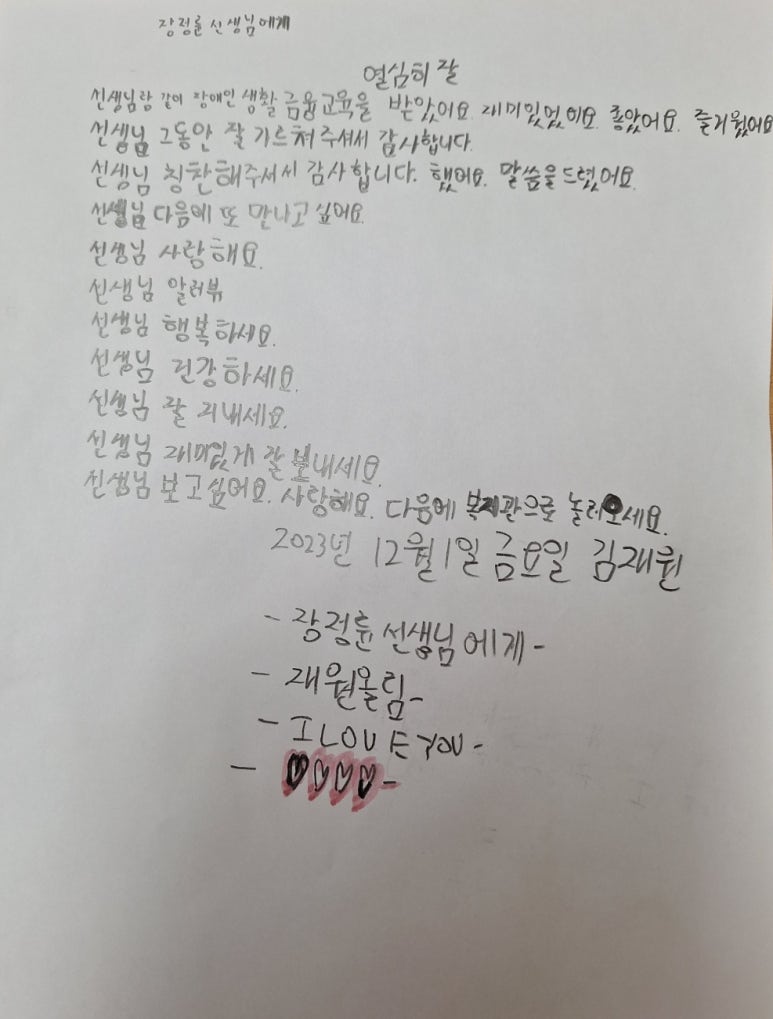 장정윤 선생님에게
열심히 잘
선생님랑 같이 장애인 생활 금융교육을 받았어요. 재미있었어요. 좋았어요. 즐거웠어요
선생님 그동안 잘 가르쳐주셔서 감사합니다.
선생님 칭찬해주셔서 감사합니다. 했어요. 말씀을드렸어요.
선생님 다음에 또 만나고 싶어요.
선생님 사랑해요.
선생님 알러뷰
선생님 행복하세요.
선생님 건강하세요.
선생님 잘 지내세요.
선생님 재미있게 잘 보내세요.
선생님 보고싶어요. 사랑해요. 다음에 복지관으로 놀러오세요.
2023년 12월1일 금요일 김재원
- 장정윤선생님에게-
- 재원올림-
- I LOVE YOU -